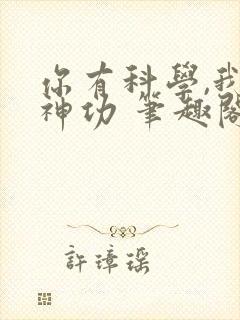 你有科學,我
神功 筆趣閣
許璋瑶